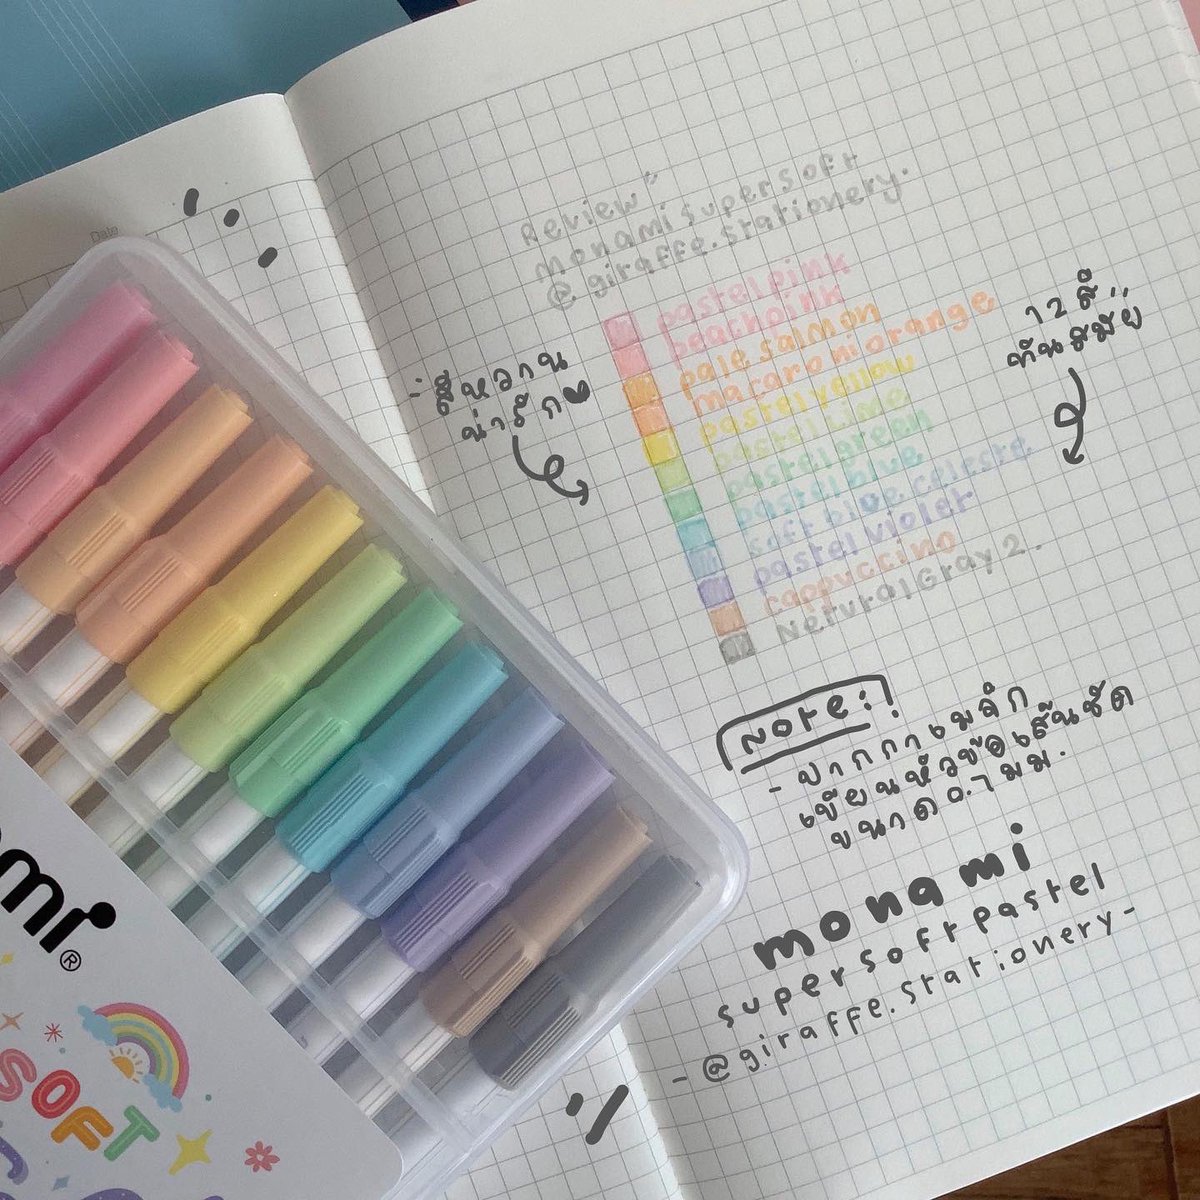 Date
Review"
monami supersoft
@giraffe.stationery.
pastel pink
peach pink
pale salmon
macaroni orange
pastel yellow
pastel lime
pastel green
pastel blue
soft blue celeste
pastel violet
cappuccino
Netural Gray 2.
สีหวาน
น่ารัก
12 สี
ทันสมัย
Note:!
- ปากกาเมจิก
เขียนหัวข้อเส้นชัด
ขนาด 0.7 มม.
monami
supersoft pastel
- @giraffe.stationery -
ami®
SOFT